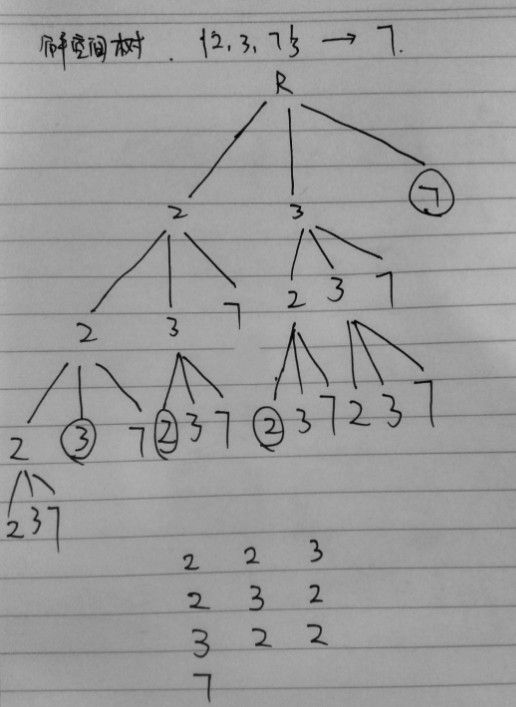 解空间树. {2,3,7} → 7.
R
2 3 7
2 3 7 2 3 7
2 3 7 2 3 7 2 3 7 2 3 7
2 3 7
2 2 3
2 3 2
3 2 2
7